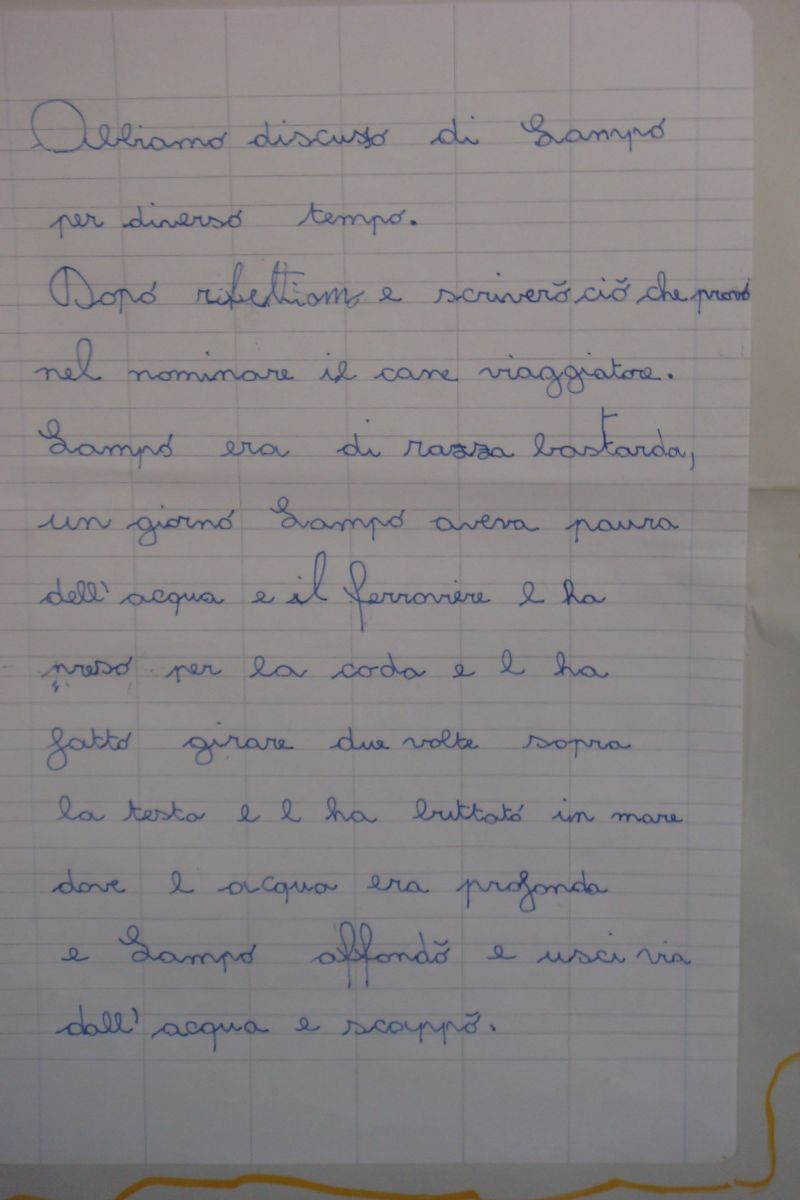 Abbiamo discusso di Lampo
per diverso tempo.
Dopo riflettiamo e scriverò ciò che provo
nel nominare il cane viaggiatore.
Lampo era di razza bastarda,
un giorno Lampo aveva paura
dell'acqua e il ferroviere l ha
preso per la coda e l ha
fatto girare due volte sopra
la testa e l ha buttato in mare
dove l acqua era profonda
e Lampo affondò e usci via
dall'acqua e scappò.